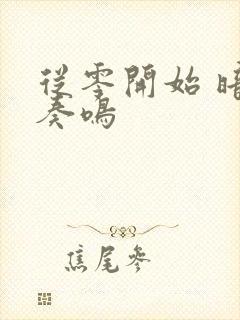 從零開始 暗
奏鳴
焦尾參